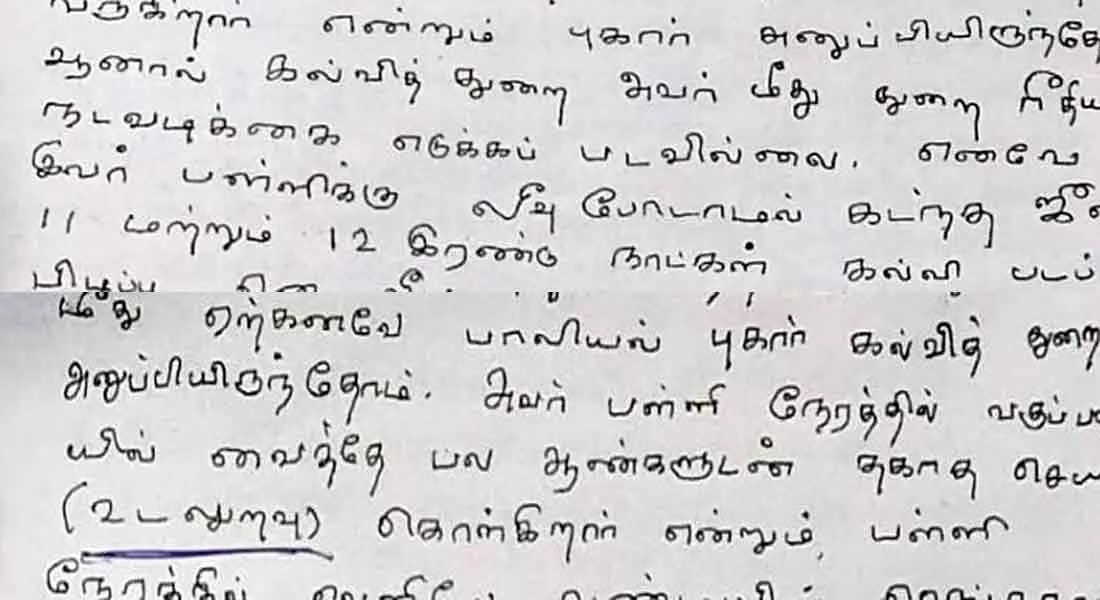 வருகிறார் என்றும் புகார் அனுப்பியிருந்தே
ஆனால் கல்வித் துறை அவர் மீது துறை ரீதிய
நடவடிக்கை எடுக்கப் படவில்லை. எனவே
இவர் பள்ளிக்கு லீவு போடாமல் கடந்த ஜீன
11 மற்றும் 12 இரண்டு நாட்கள் கல்வி படப்
மீது ஏற்கனவே பாலியல் புகார் கல்வித் துறை
அனுப்பியிருந்தோம். அவர் பள்ளி நேரத்தில் வகுப்ப
யில் வைத்தே பல ஆண்களுடன் தகாத செய
(உடலுறவு) கொள்கிறார் என்றும், பள்ளி
நேரத்தில்